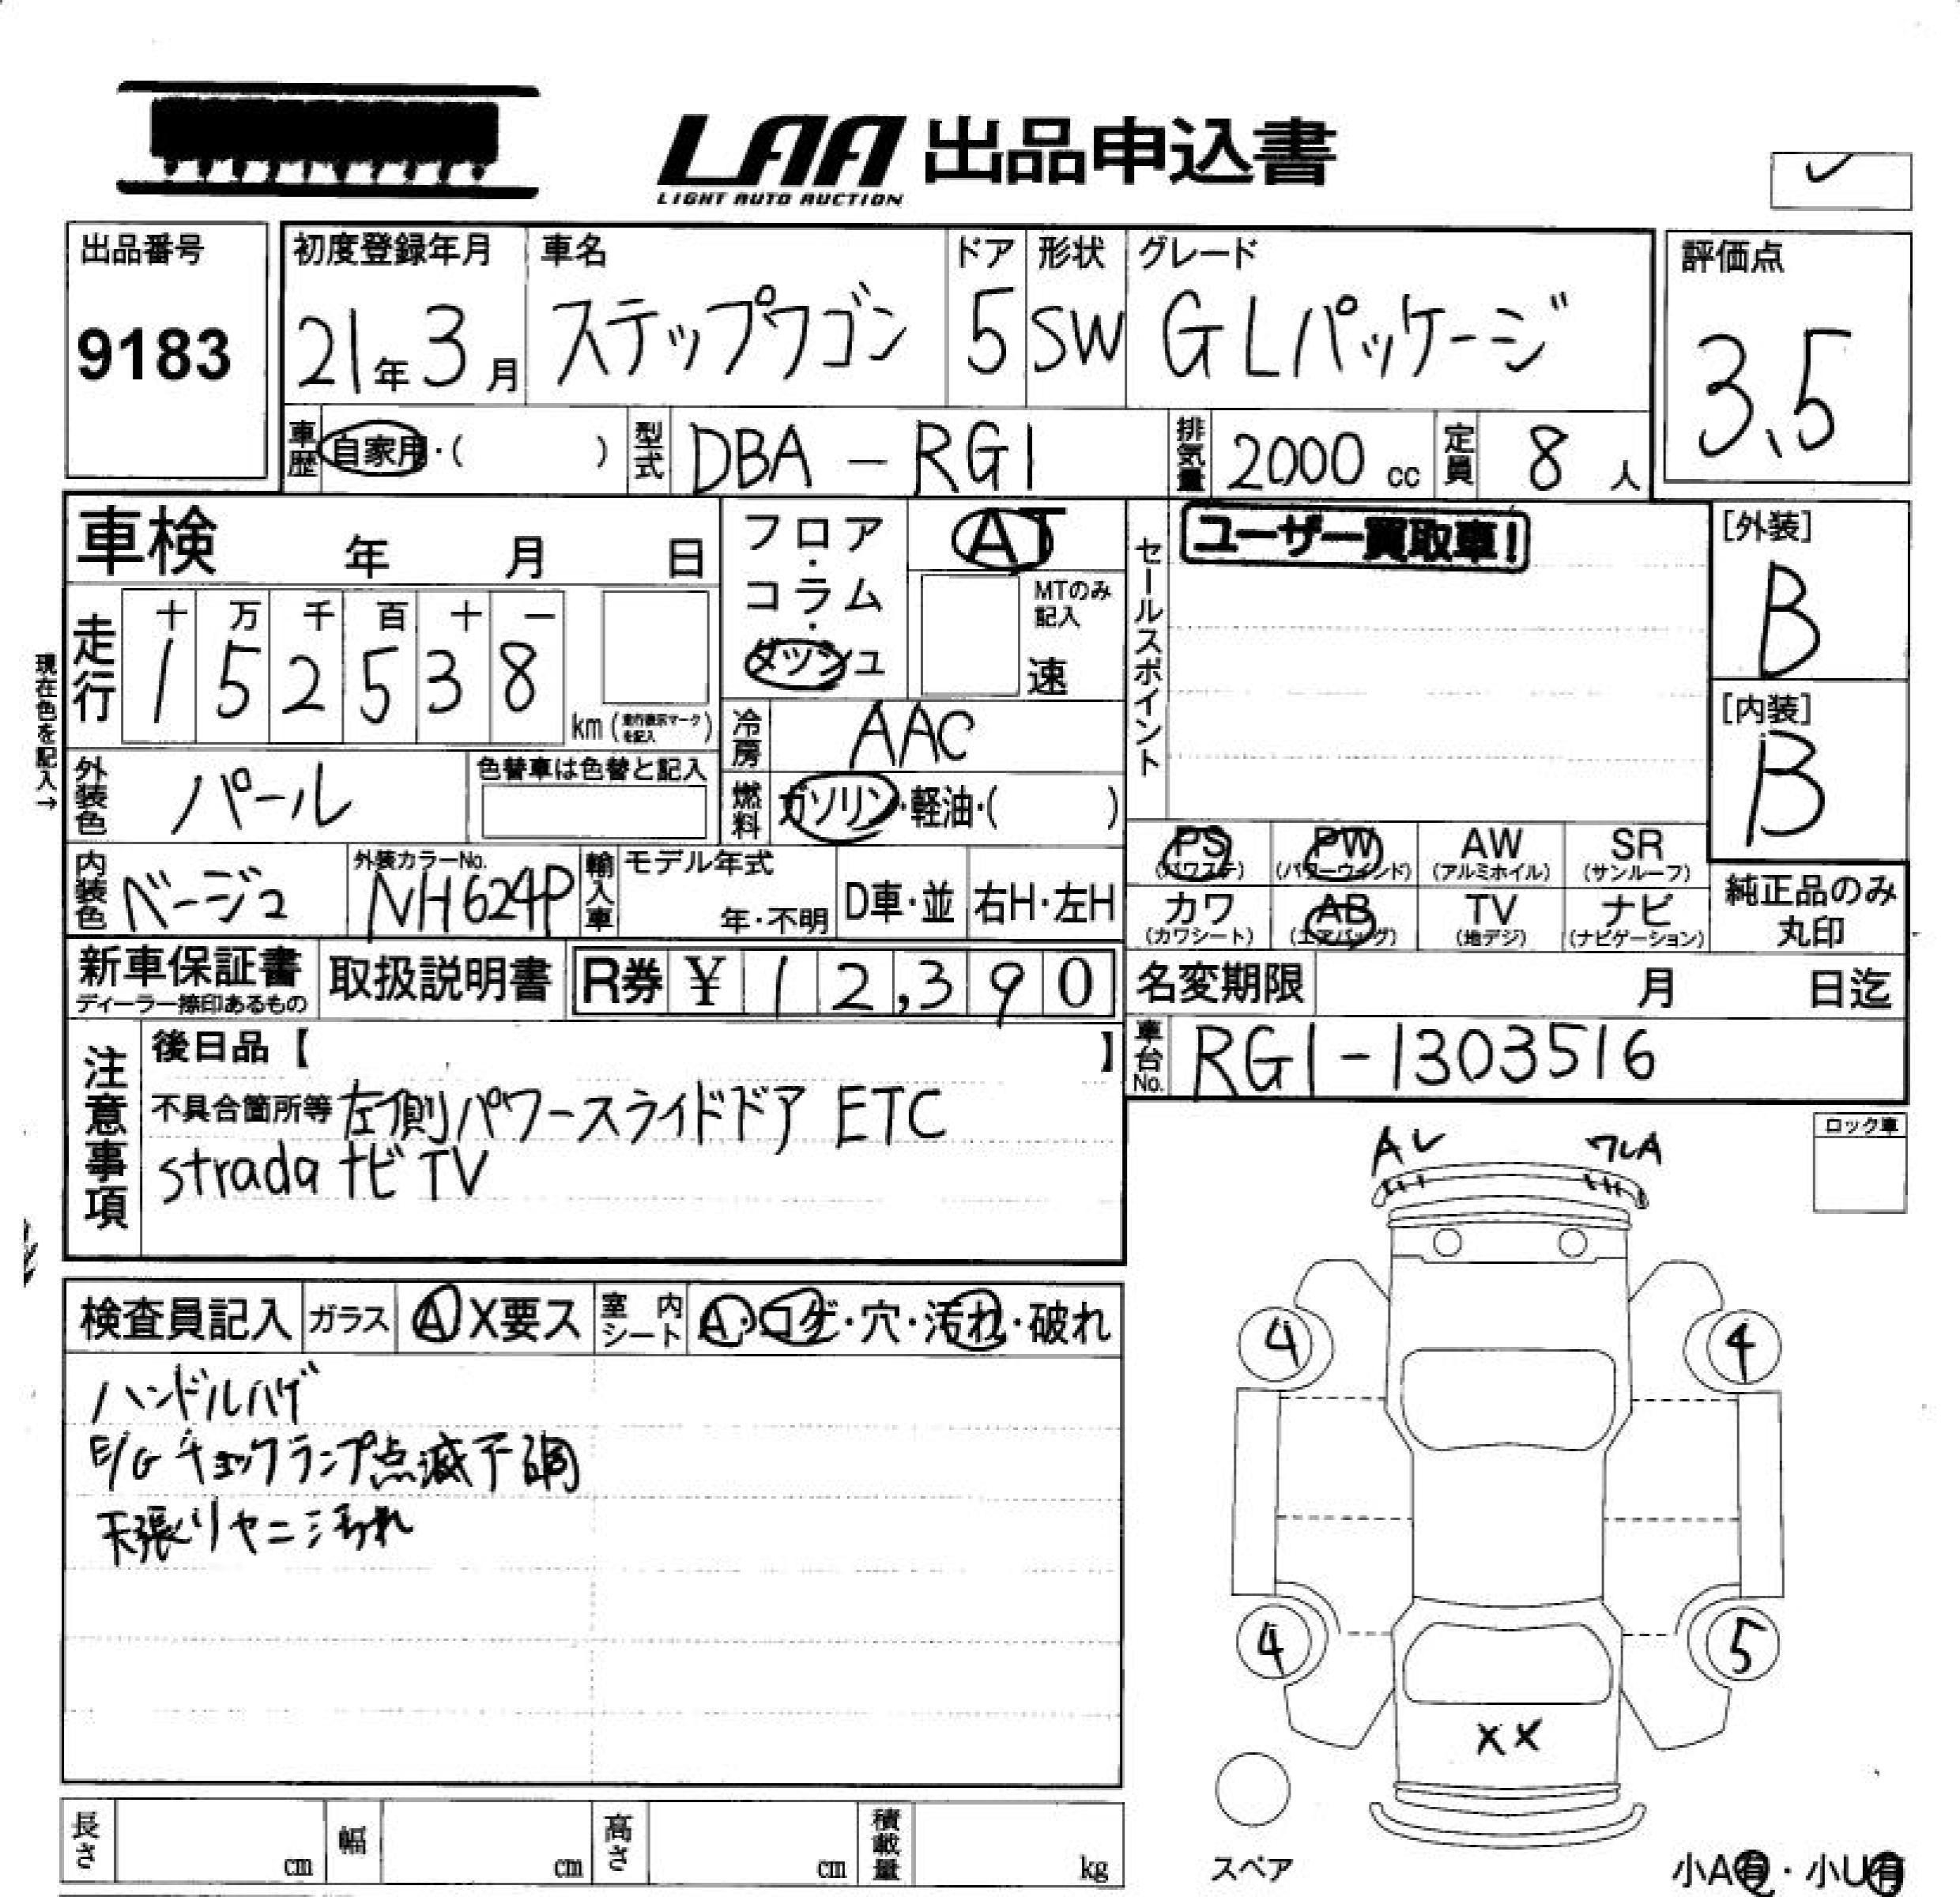 LAA 出品申込書
LIGHT AUTO AUCTION
出品番号
9183
初度登録年月
21年3月
車名
ステップワゴン
ドア
5
形状
SW
グレード
GLパッケージ
評価点
3.5
車歴 自家用・( )
型式 DBA-RG1
排気量 2000 cc
定員 8 人
車検 年 月 日
フロア・コラム・ダッシュ
AT
MTのみ記入
速
セールスポイント
ユーザー買取車!
[外装]
B
[内装]
B
現在色を記入→
走行
十 万 千 百 十 一
1 5 2 5 3 8
km (走行表示マークを記入)
冷房 AAC
外装色 パール
色替車は色替と記入
燃料 ガソリン・軽油・( )
内装色 ベージュ
外装カラーNo.
NH624P
輸入車
モデル年式
年・不明
D車・並
右H・左H
PS (パワステ)
PW (パワーウィンド)
AW (アルミホイル)
SR (サンルーフ)
カワ (カワシート)
AB (エアバッグ)
TV (地デジ)
ナビ (ナビゲーション)
純正品のみ
丸印
新車保証書
ディーラー捺印あるもの
取扱説明書
R券 ¥ 12,390
名変期限 月 日迄
車台No. RG1-1303516
注意事項
後日品【 】
不具合箇所等 左側パワースライドドア ETC
strada ナビ TV
ロック車
検査員記入
ガラス A X要ス
室内シート A・コゲ・穴・汚れ・破れ
ハンドルハゲ
E/Gチェックランプ点滅不調
天張りヤニ汚れ
A
ワレA
4
4
4
5
XX
スペア
長さ cm
幅 cm
高さ cm
積載量 kg
小A有・小U有